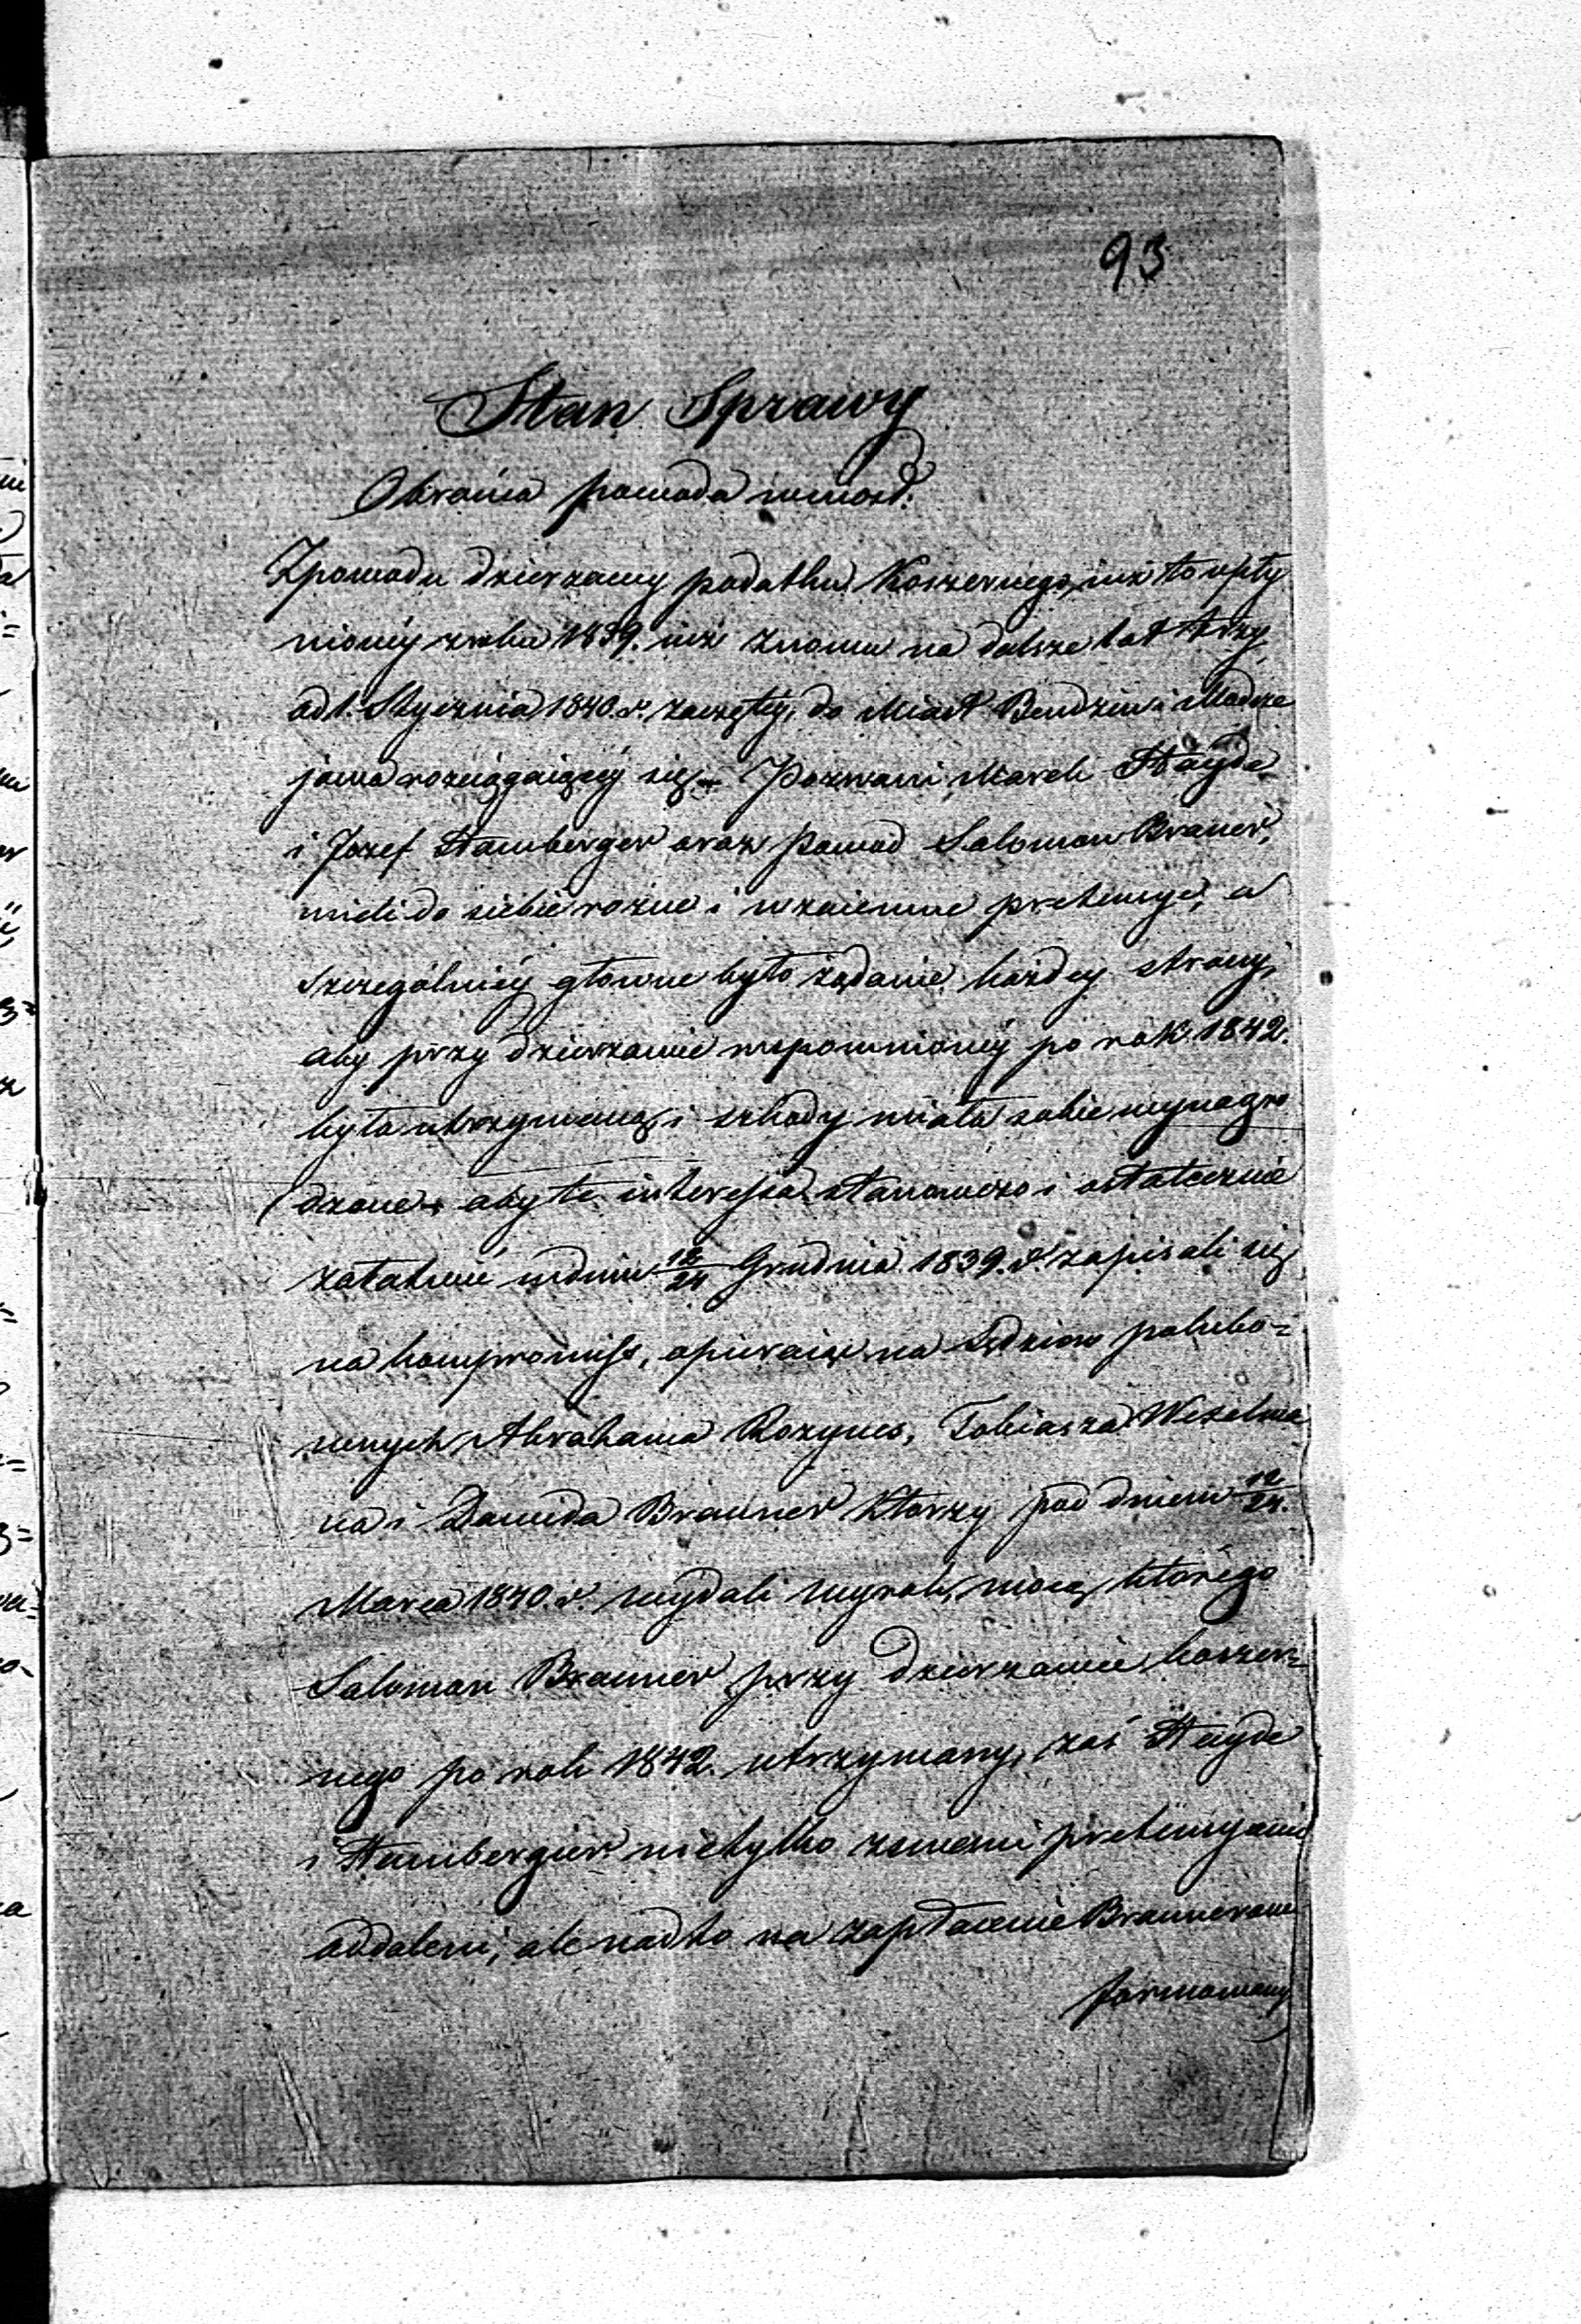 93
Stan Sprawy
Obrońca powoda wniósł.
Z powodu dzierzawy podatku Koszernego, iuż to upły
nioney zroku 1839. iuż znowu na dalsze lat trzy
od 1. Stycznia 1840. r. zaczętéj, do Miast Bendzin i Modrze
jowa rozciągaiącéj się – Pozwani Marek Hayda
i Jozef Hamberger oraz Powod Salomon Braner,
mieli do siebie rożne i wzaiemne pretensye, a
szczególniéj głowne było żądanie każdey strony,
aby przy dzierzawie wspomnionéj po rok 1842.
była utrzymaną, i szkody miała sobie wynagro
dzone – aby te interessa stanowczo i ostatecznie
załatwić wdniu 12/24 Grudnia 1839. r. zapisali się
na kompromiss, opieraiąc na Sędziow polubo=
wnych Abrahama Rozynes, Tobiasza Weselma
na i Dawida Brauner ktorzy pod dniem 12/24.
Marca 1840. r. wydali wyrok, mocą którego
Salomon Brauner przy dzierzawie koszer=
nego po rok 1842. utrzymany, zaś Hayda
i Hambergier nietylko zswemi pretensyami
oddaleni, ale nadto na zapłacenie Braunerowi